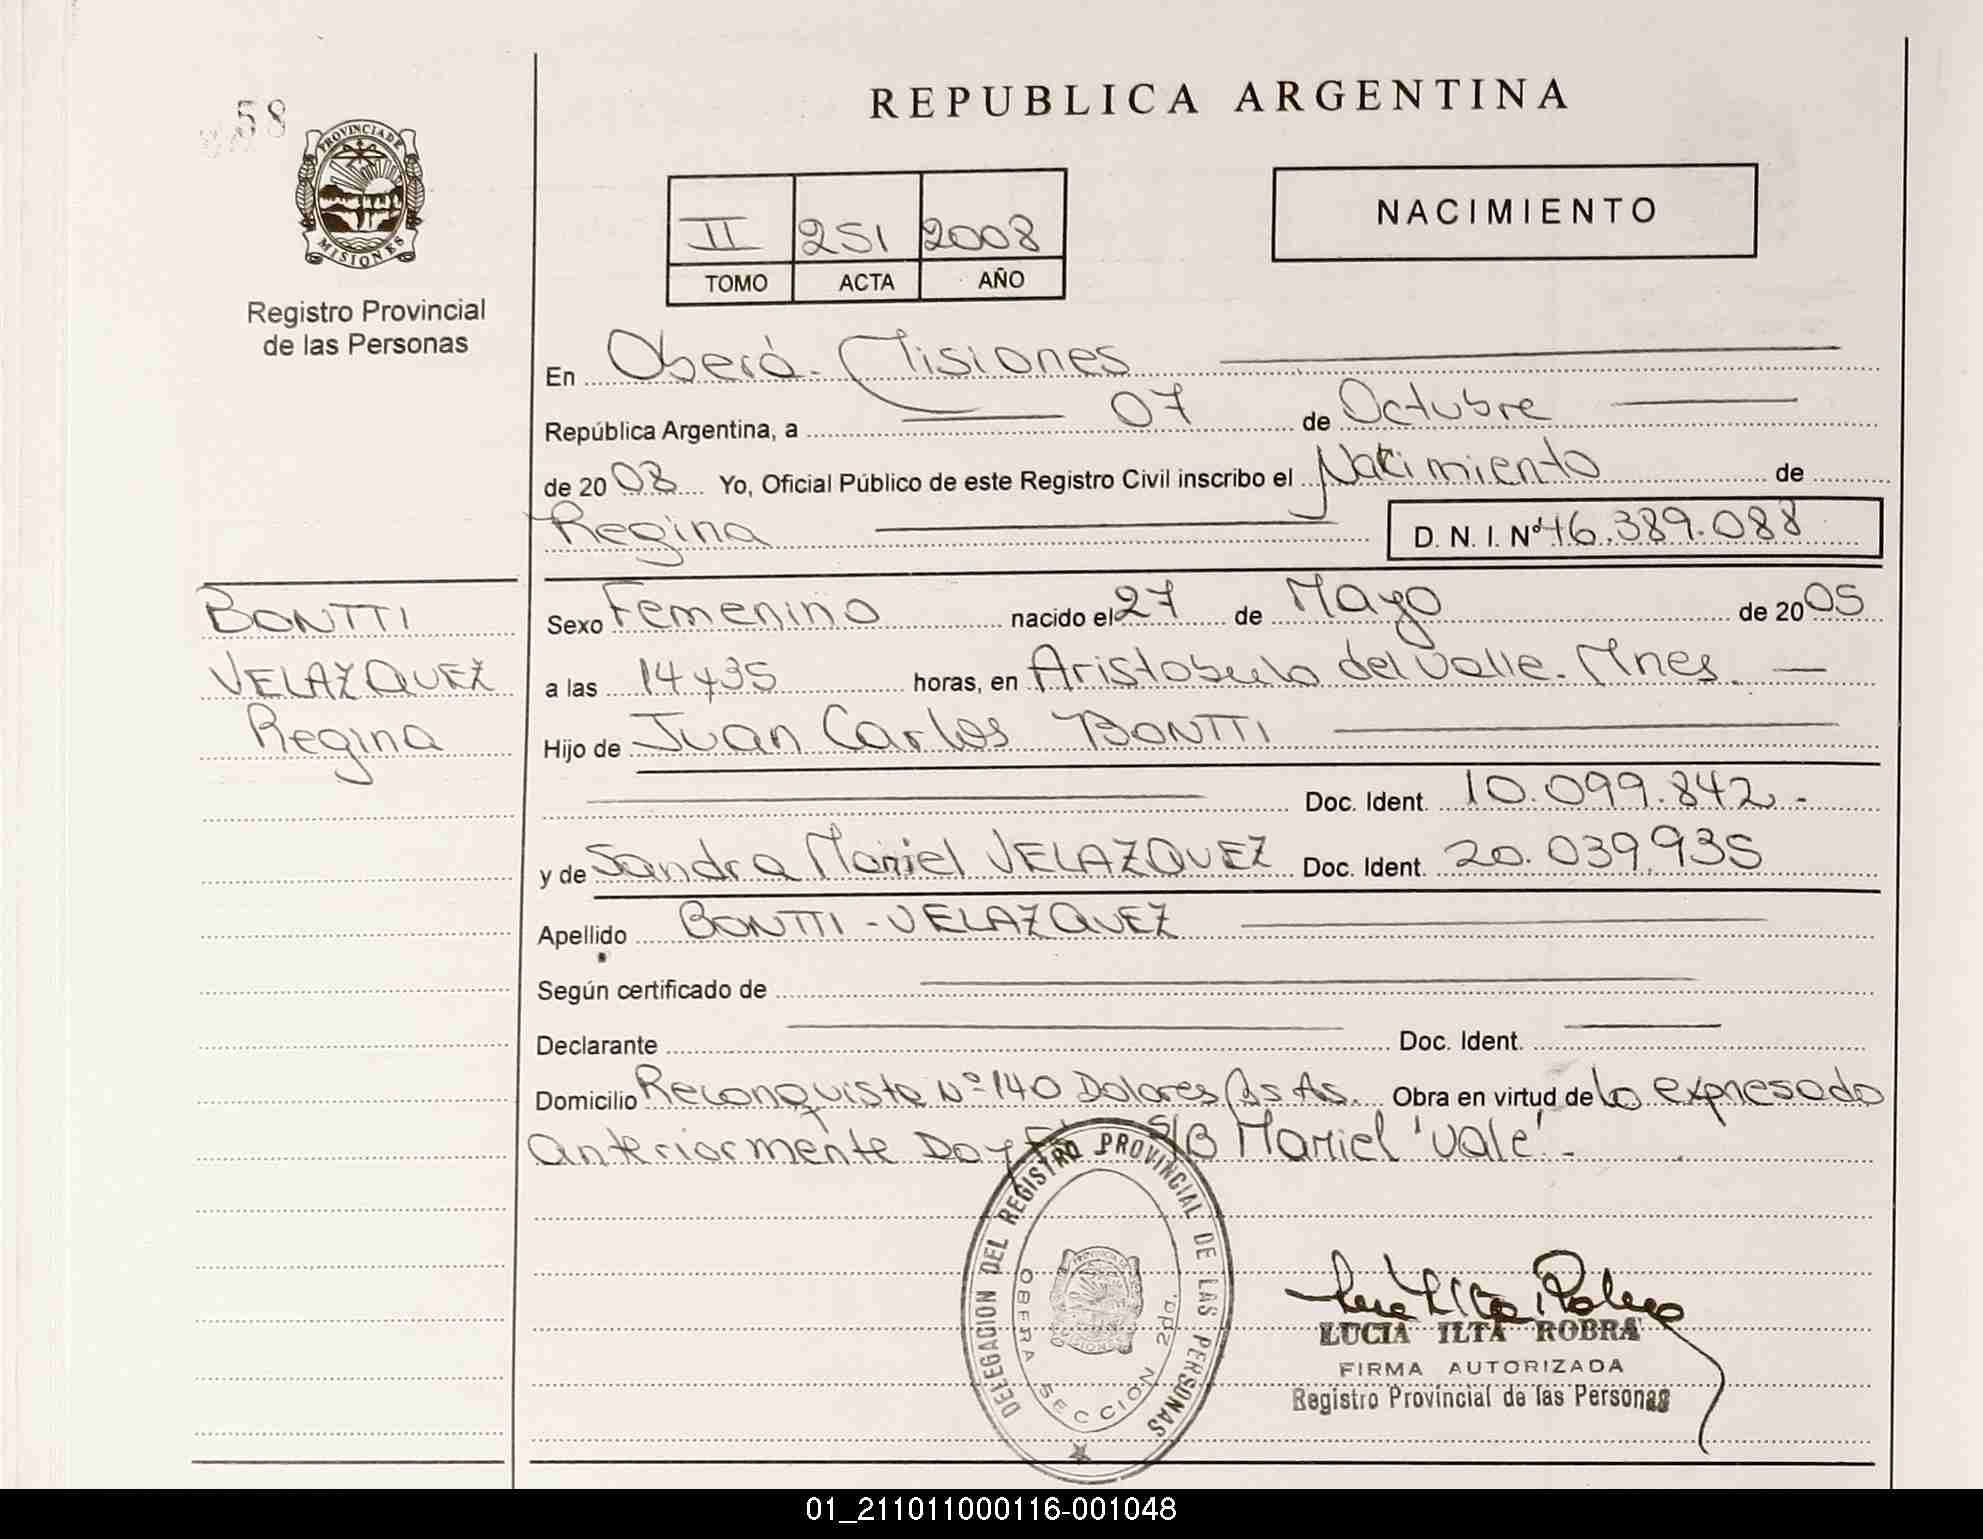 58
PROVINCIA DE
MISIONES
Registro Provincial
de las Personas
REPUBLICA ARGENTINA
II 251 2008
TOMO ACTA AÑO
NACIMIENTO
En Oberá - Misiones
República Argentina, a 07 de Octubre
de 2008 Yo, Oficial Público de este Registro Civil inscribo el Nacimiento de
Regina D. N. I. Nº 46.389.088
BONTTI
VELAZQUEZ
Regina
Sexo Femenino nacido el 27 de Mayo de 2005
a las 14 y 35 horas, en Aristobulo del Valle - Mnes.
Hijo de Juan Carlos BONTTI
Doc. Ident. 10.099.842 -
y de Sandra Mariel VELAZQUEZ Doc. Ident. 20.039.935
Apellido BONTTI - VELAZQUEZ
Según certificado de
Declarante Doc. Ident.
Domicilio Reconquista Nº 140 Dolores Bs As. Obra en virtud de lo expresado
anteriormente Doy S/B Mariel 'vale'.-
DELEGACION DEL REGISTRO PROVINCIAL DE LAS PERSONAS
OBERA SECCION 2da.
LUCIA ILTA ROBRA
FIRMA AUTORIZADA
Registro Provincial de las Personas
01_211011000116-001048